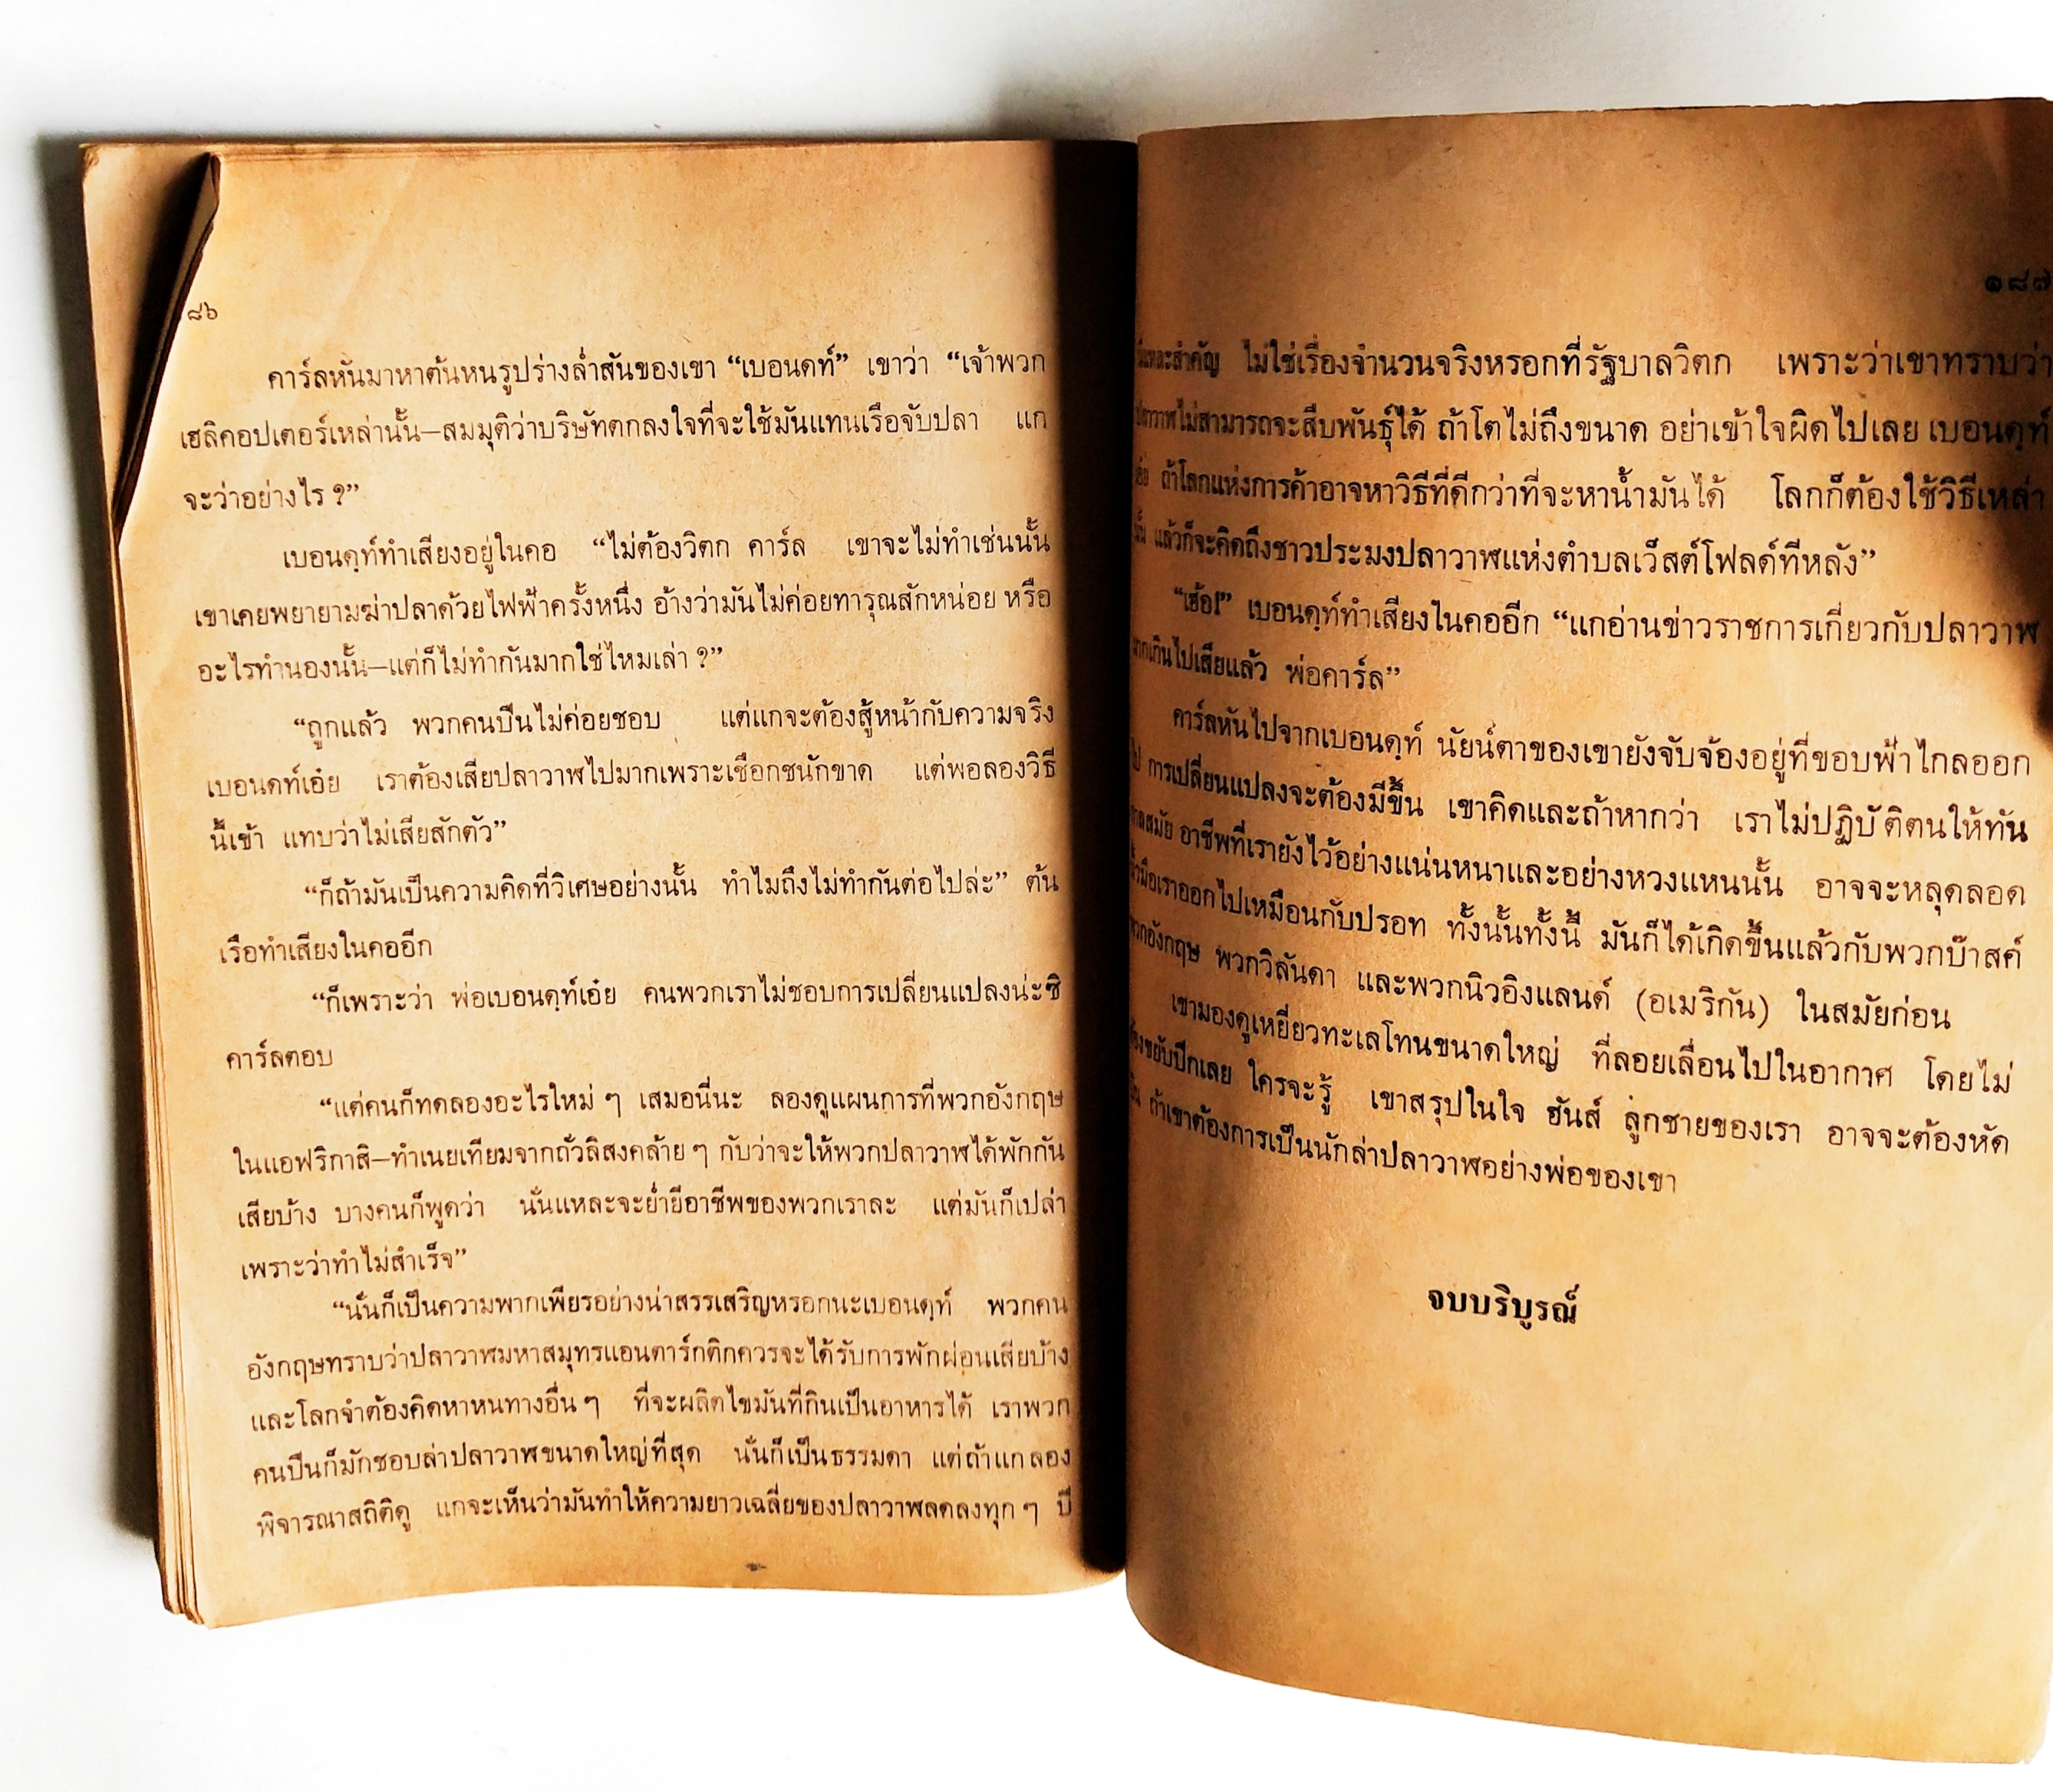 ๘๖
คาร์ลหันมาหาต้นหนรูปร่างล่ำสันของเขา “เบอนดท์” เขาว่า “เจ้าพวก
เฮลิคอปเตอร์เหล่านั้น—สมมุติว่าบริษัทตกลงใจที่จะใช้มันแทนเรือจับปลา แก
จะว่าอย่างไร ?”
เบอนดฺท์ทำเสียงอยู่ในคอ “ไม่ต้องวิตก คาร์ล เขาจะไม่ทำเช่นนั้น
เขาเคยพยายามฆ่าปลาด้วยไฟฟ้าครั้งหนึ่ง อ้างว่ามันไม่ค่อยทารุณสักหน่อย หรือ
อะไรทำนองนั้น—แต่ก็ไม่ทำกันมากใช่ไหมเล่า ?”
“ถูกแล้ว พวกคนปืนไม่ค่อยชอบ แต่แกจะต้องสู้หน้ากับความจริง
เบอนดท์เอ๋ย เราต้องเสียปลาวาฬไปมากเพราะเชือกชนักขาด แต่พอลองวิธี
นี้เข้า แทบว่าไม่เสียสักตัว”
“ก็ถ้ามันเป็นความคิดที่วิเศษอย่างนั้น ทำไมถึงไม่ทำกันต่อไปล่ะ” ต้น
เรือทำเสียงในคออีก
“ก็เพราะว่า พ่อเบอนดฺท์เอ๋ย คนพวกเราไม่ชอบการเปลี่ยนแปลงน่ะซิ
คาร์ลตอบ
“แต่คนก็ทดลองอะไรใหม่ ๆ เสมอนี่นะ ลองดูแผนการที่พวกอังกฤษ
ในแอฟริกาสิ—ทำเนยเทียมจากถั่วลิสงคล้าย ๆ กับว่าจะให้พวกปลาวาฬได้พักกัน
เสียบ้าง บางคนก็พูดว่า นั่นแหละจะย่ำยีอาชีพของพวกเราละ แต่มันก็เปล่า
เพราะว่าทำไม่สำเร็จ”
“นั่นก็เป็นความพากเพียรอย่างน่าสรรเสริญหรอกนะเบอนดฺท์ พวกคน
อังกฤษทราบว่าปลาวาฬมหาสมุทรแอนตาร์กติกควรจะได้รับการพักผ่อนเสียบ้าง
และโลกจำต้องคิดหาหนทางอื่น ๆ ที่จะผลิตไขมันที่กินเป็นอาหารได้ เราพวก
คนปืนก็มักชอบล่าปลาวาฬขนาดใหญ่ที่สุด นั่นก็เป็นธรรมดา แต่ถ้าแกลอง
พิจารณาสถิติดู แกจะเห็นว่ามันทำให้ความยาวเฉลี่ยของปลาวาฬลดลงทุก ๆ ปี
๑๘๗
สำคัญ ไม่ใช่เรื่องจำนวนจริงหรอกที่รัฐบาลวิตก เพราะว่าเขาทราบว่า
ปลาวาฬไม่สามารถจะสืบพันธุ์ได้ ถ้าโตไม่ถึงขนาด อย่าเข้าใจผิดไปเลย เบอนดฺท์
ถ้าโลกแห่งการค้าอาจหาวิธีที่ดีกว่าที่จะหาน้ำมันได้ โลกก็ต้องใช้วิธีเหล่า
แล้วก็จะคิดถึงชาวประมงปลาวาฬแห่งตำบลเว็สต์โฟลด์ทีหลัง”
“เฮ้อ!” เบอนดฺท์ทำเสียงในคออีก “แกอ่านข่าวราชการเกี่ยวกับปลาวาฬ
มากเกินไปเสียแล้ว พ่อคาร์ล”
คาร์ลหันไปจากเบอนดฺท์ นัยน์ตาของเขายังจับจ้องอยู่ที่ขอบฟ้าไกลออก
ไป การเปลี่ยนแปลงจะต้องมีขึ้น เขาคิดและถ้าหากว่า เราไม่ปฏิบัติตนให้ทัน
อาชีพที่เรายังไว้อย่างแน่นหนาและอย่างหวงแหนนั้น อาจจะหลุดลอด
มือเราออกไปเหมือนกับปรอท ทั้งนั้นทั้งนี้ มันก็ได้เกิดขึ้นแล้วกับพวกบ๊าสค์
พวกอังกฤษ พวกวิลันดา และพวกนิวอิงแลนด์ (อเมริกัน) ในสมัยก่อน
เขามองดูเหยี่ยวทะเลโทนขนาดใหญ่ ที่ลอยเลื่อนไปในอากาศ โดยไม่
ต้องขยับปีกเลย ใครจะรู้ เขาสรุปในใจ ฮันส์ ลูกชายของเรา อาจจะต้องหัด
ถ้าเขาต้องการเป็นนักล่าปลาวาฬอย่างพ่อของเขา
จบบริบูรณ์